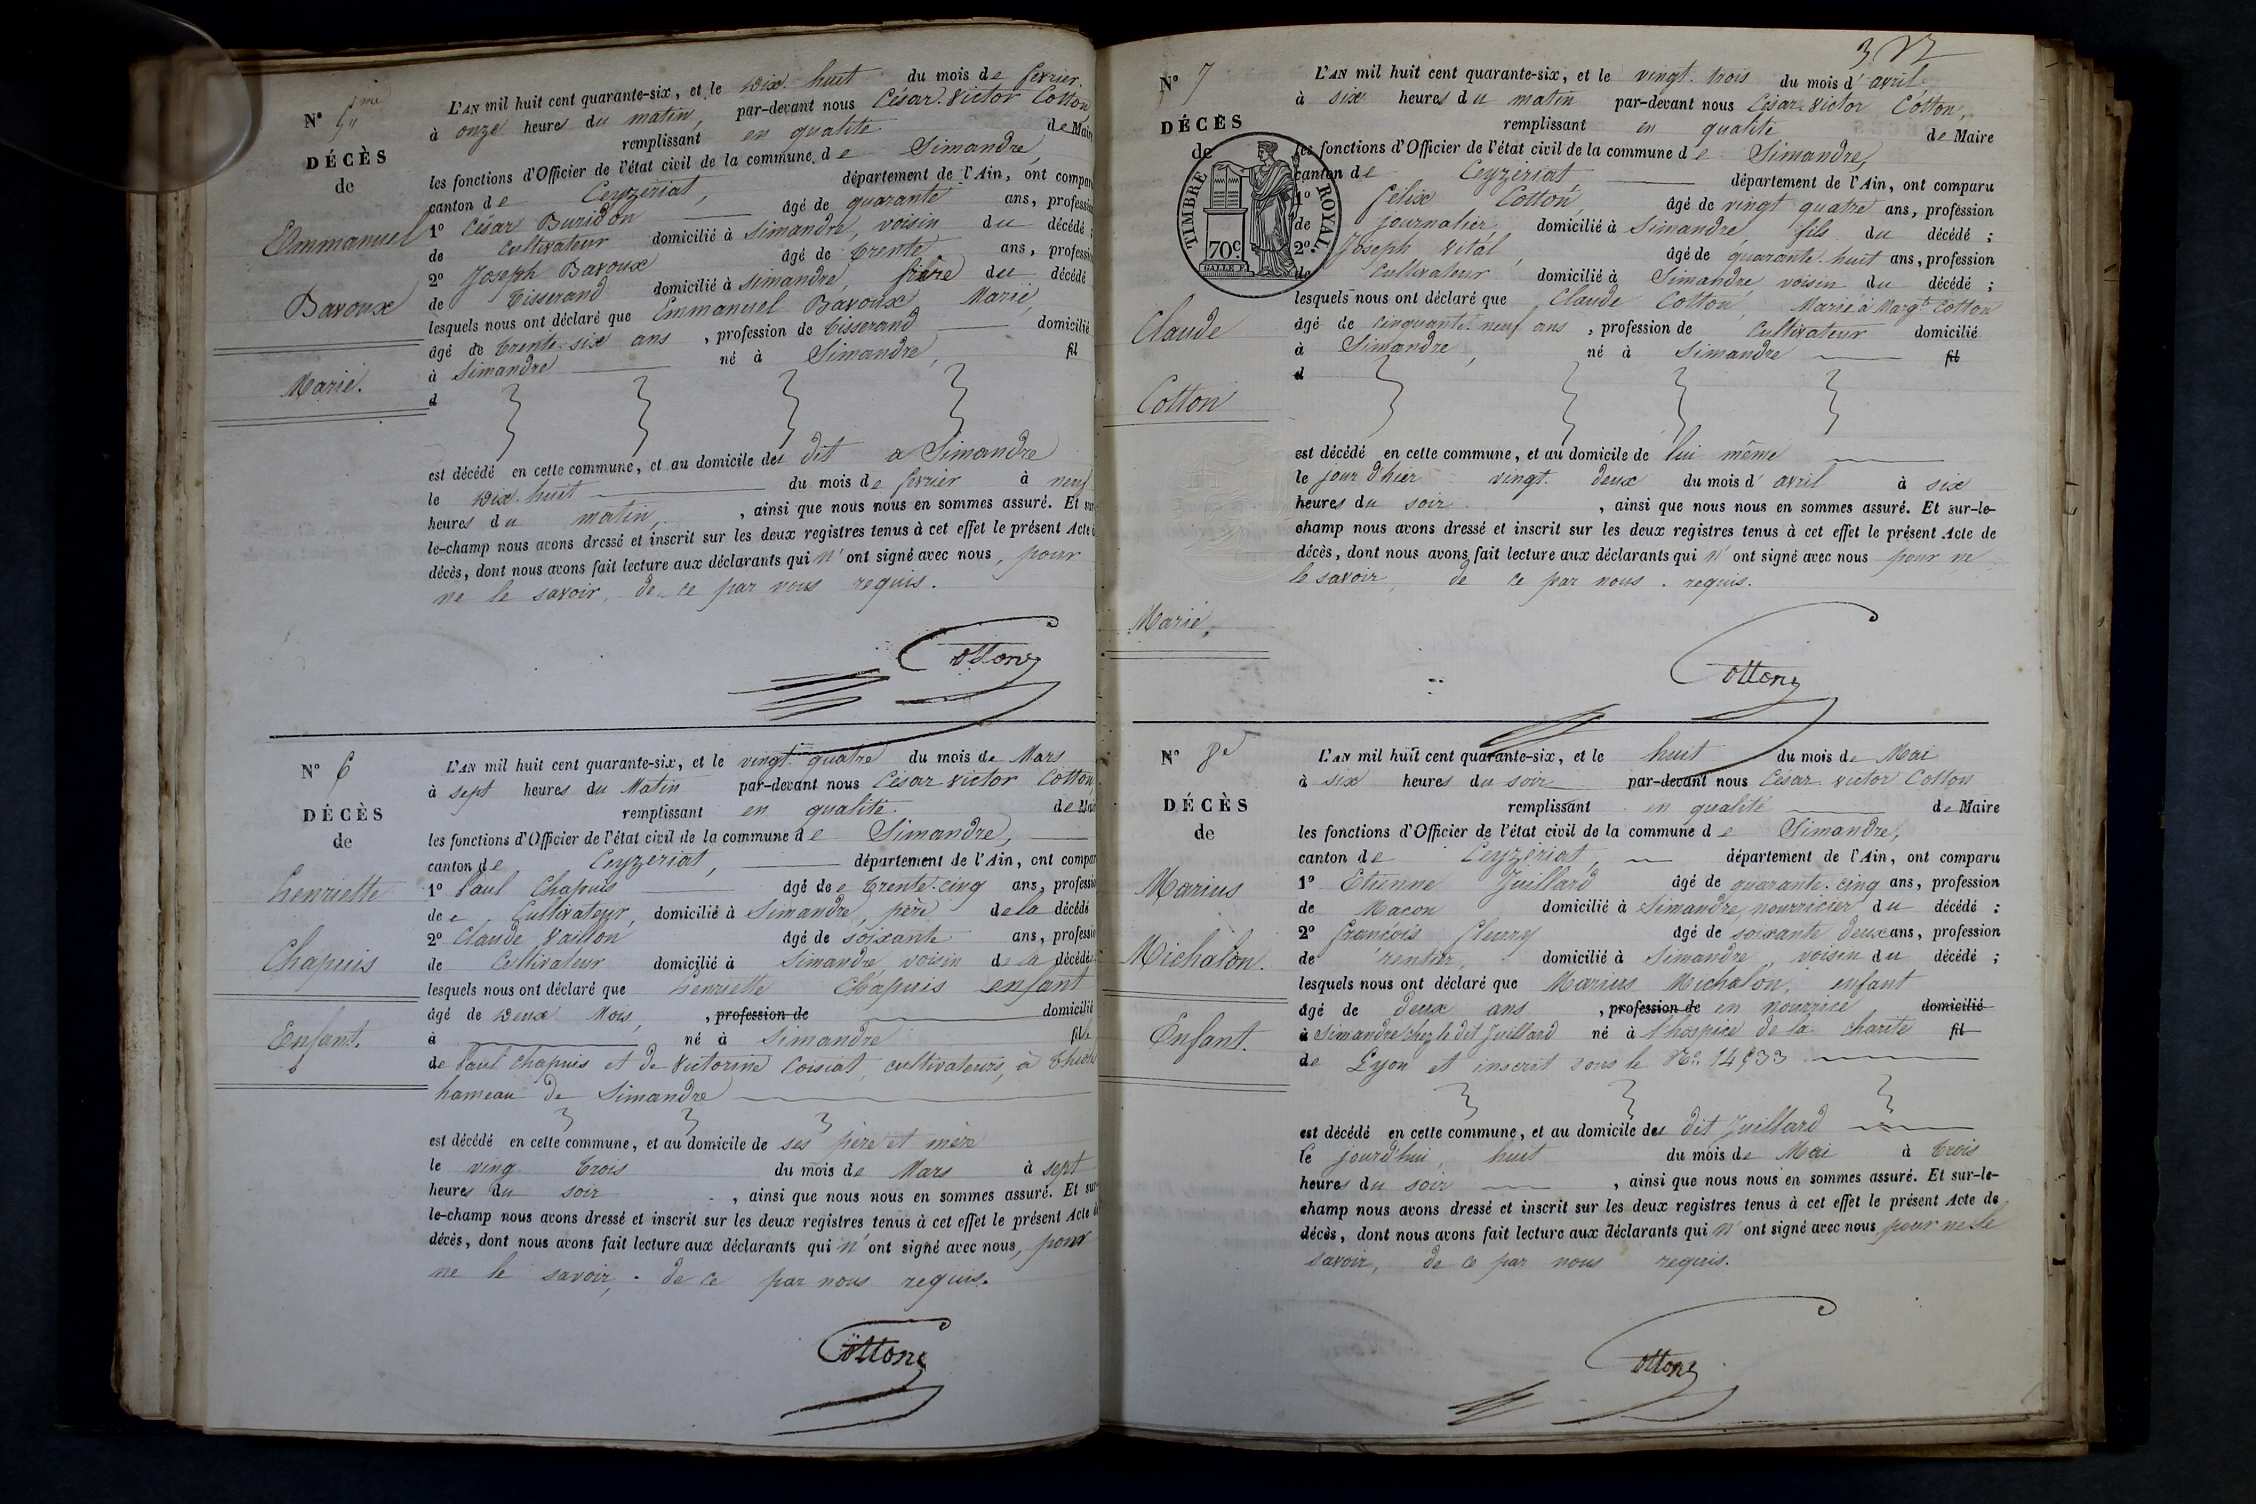 N° 5me
DÉCÈS
de
Emmanuel
Bavoux
Marié.
L'AN mil huit cent quarante-six, et le dix huit du mois de fevrier
à onze heures du matin, par-devant nous César Victor Cotton
remplissant en qualité de Mair
les fonctions d'Officier de l'état civil de la commune de Simandre,
canton de Ceyzeriat, département de l'Ain, ont compar
1° César Buridon âgé de quarante ans, profession
de cultivateur domicilié à Simandre, voisin du décédé ;
2° Joseph Bavoux âgé de trente ans, profession
de tisserand domicilié à Simandre, frère du décédé
lesquels nous ont déclaré que Emmanuel Bavoux Marié,
âgé de trente-six ans , profession de tisserand domicilié
à Simandre né à Simandre, fil
d
est décédé en cette commune, et au domicile du dit a Simandre
le dix-huit du mois de fevrier à neuf
heures du matin, , ainsi que nous nous en sommes assuré. Et sur-
le-champ nous avons dressé et inscrit sur les deux registres tenus à cet effet le présent Acte d
décès, dont nous avons fait lecture aux déclarants qui n'ont signé avec nous, pour
ne le savoir, de ce par nous requis.
Cotton
N° 6
DÉCÈS
de
henriette
Chapuis
Enfant.
L'AN mil huit cent quarante-six, et le vingt quatre du mois de Mars
à sept heures du Matin par-devant nous César Victor Cotton
remplissant en qualité de Mair
les fonctions d'Officier de l'état civil de la commune de Simandre,
canton de Ceyzeriat, département de l'Ain, ont compar
1° Paul Chapuis âgé de trente-cinq ans, profession
de Cultivateur, domicilié à Simandre, père de la décédé
2° Claude Vaillon âgé de soixante ans, profession
de Cultivateur domicilié à Simandre, voisin de la décédée
lesquels nous ont déclaré que henriette Chapuis enfant
âgé de Deux Mois, , profession de domicilié
à né à Simandre fille
de Paul Chapuis et de Victorine Coisiat, cultivateurs, à
hameau de Simandre
est décédé en cette commune, et au domicile de ses père et mère
le ving trois du mois de Mars à sept
heures du soir , ainsi que nous nous en sommes assuré. Et sur-
le-champ nous avons dressé et inscrit sur les deux registres tenus à cet effet le présent Acte d
décès, dont nous avons fait lecture aux déclarants qui n'ont signé avec nous, pour
ne le savoir, de ce par nous requis.
Cotton
N° 7
DÉCÈS
de
TIMBRE ROYAL.
70c
Claude
Cotton
Marié,
L'AN mil huit cent quarante-six, et le vingt trois du mois d'avril,
à six heures du matin par-devant nous César Victor Cotton,
remplissant en qualité de Maire
les fonctions d'Officier de l'état civil de la commune de Simandre,
canton de Ceyzeriat département de l'Ain, ont comparu
1° félix Cotton, âgé de vingt quatre ans, profession
de journalier, domicilié à Simandre, fils du décédé ;
2° Joseph Vital, âgé de quarante huit ans, profession
de Cultivateur domicilié à Simandre voisin du décédé ;
lesquels nous ont déclaré que Claude Cotton, Marié à Margte Cotton
âgé de cinquante neuf ans , profession de cultivateur domicilié
à Simandre, né à Simandre fil
d
est décédé en cette commune, et au domicile de lui même
le jour d'hier vingt deux du mois d'avril à six
heures du soir , ainsi que nous nous en sommes assuré. Et sur-le-
champ nous avons dressé et inscrit sur les deux registres tenus à cet effet le présent Acte de
décès, dont nous avons fait lecture aux déclarants qui n'ont signé avec nous pour ne
le savoir, de ce par nous requis.
Cotton
N° 8e
DÉCÈS
de
Marius
Michalon.
Enfant.
L'AN mil huit cent quarante-six, et le huit du mois de Mai
à six heures du soir par-devant nous César Victor Cotton
remplissant en qualité de Maire
les fonctions d'Officier de l'état civil de la commune de Simandre,
canton de Ceyzériat, département de l'Ain, ont comparu
1° Etienne Juillard âgé de quarante-cinq ans, profession
de Macon domicilié à Simandre, nourricier du décédé ;
2° françois fleury âgé de soixante deux ans, profession
de rentier, domicilié à Simandre voisin du décédé ;
lesquels nous ont déclaré que Marius Michalon, enfant
âgé de deux ans , profession de en nourrice domicilié
à Simandre chez le dit Juillard né à l'hospice de la charité fil
de Lyon et inscrit sous le No
est décédé en cette commune, et au domicile du dit Juillard
le jourd'hui, huit du mois de Mai à trois
heures du soir , ainsi que nous nous en sommes assuré. Et sur-le-
champ nous avons dressé et inscrit sur les deux registres tenus à cet effet le présent Acte de
décès, dont nous avons fait lecture aux déclarants qui n'ont signé avec nous pour ne le
savoir, de ce par nous requis.
Cotton